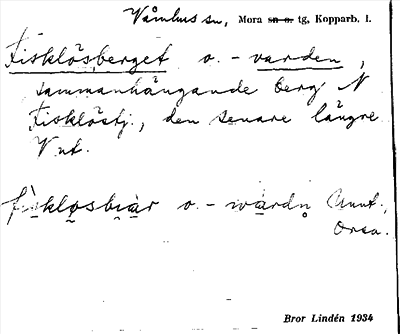 Våmhus sn, Mora sn o. tg, Kopparb. l.
Fisklösberget o. - varden,
sammanhängande berg N
Fisklöstj., den senare längre
V ut.
fiskløsbiar o. - wardn Anut.,
Orsa.
Bror Lindén 1934